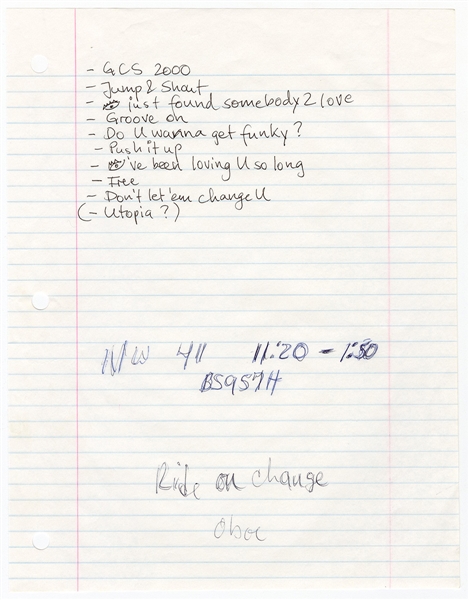 - GCS 2000
- Jump & Shout
- just found somebody 2 love
- Groove on
- Do U wanna get funky?
- Push it up
- 've been loving U so long
- Free
- Don't let 'em change U
(- Utopia?)
N/W 411 11:20 - 1:50
BS957H
Ride on change
Oboe